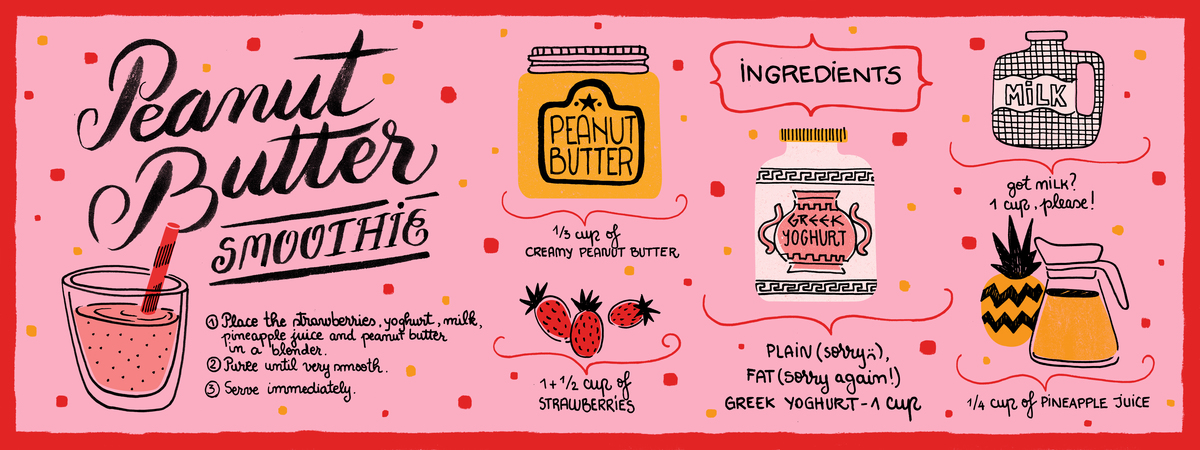 Peanut
Butter
SMOOTHiE
① Place the strawberries, yoghurt, milk,
pineapple juice and peanut butter
in a blender.
② Puree until very smooth.
③ Serve immediately.
PEANUT
BUTTER
1/3 cup of
CREAMY PEANUT BUTTER
1+1/2 cup of
STRAWBERRiES
iNGREDiENTS
GREEK
YOGHURT
PLAiN (sorry¨),
FAT (sorry again!)
GREEK YOGHURT - 1 cup
MiLK
got milk?
1 cup, please!
1/4 cup of PiNEAPPLE JUiCE